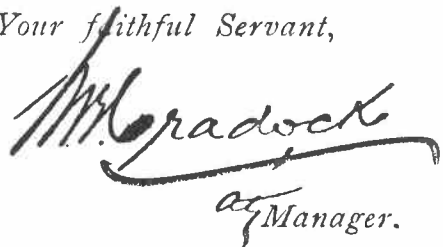 Your faithful Servant,
Cradock
Manager.